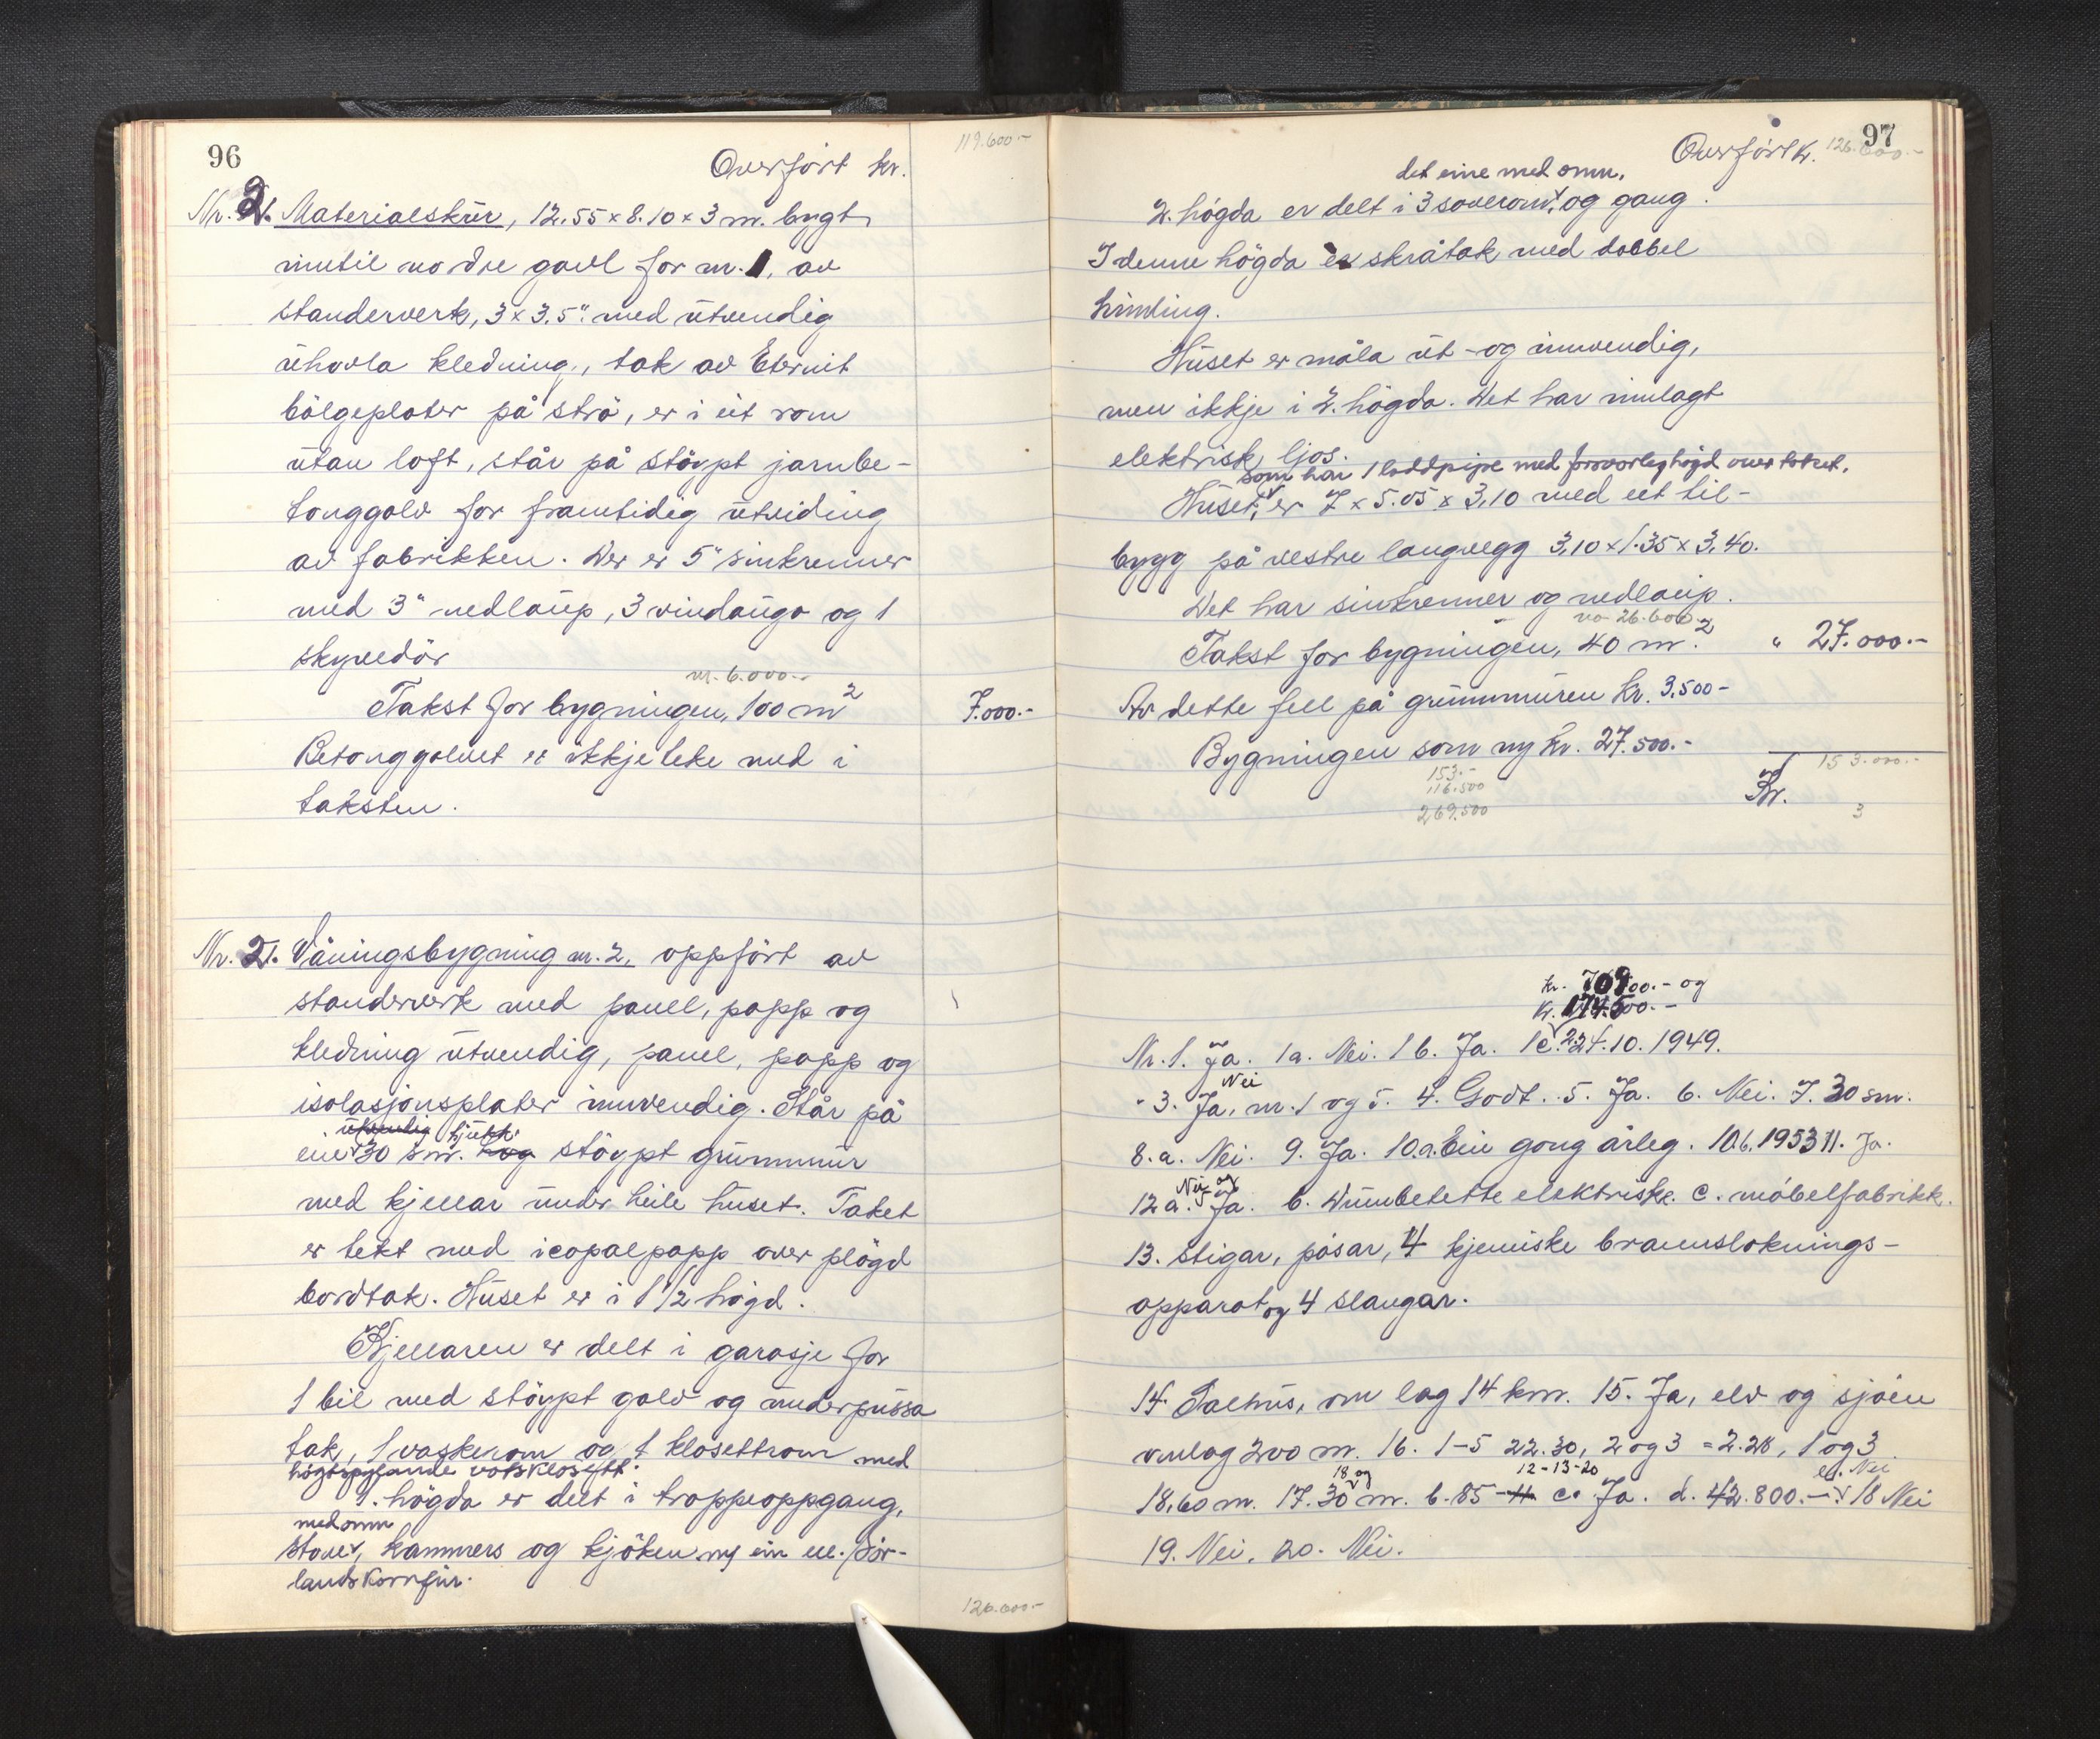 96
Overført kr.
119.600.-
Nr. 2. Materialskur, 12.55 x 8.10 x 3 m. bygt
inntil nordre gavl for nr. 1, av
standerverk, 3 x 3.5". med utvendig
uhøvla kledning, tak av Eternit
bölgeplater på strö, er i eit rom
utan loft, står på stöypt jarnbe-
tonggolv for framtidig utviding
av fabrikken. Der er 5" sinkrenner
med 3" nedlaup, 3 vindaugo og 1
skyvedör
nr. 6.000.-
Takst for bygningen, 100 m² 7.000.-
Betonggolvet er ikkje teke med i
taksten.
Nr. 2. Våningsbygning nr. 2, oppfört av
standerverk med panel, papp og
kledning utvendig, panel, papp og
isolasjonsplater innvendig. Står på
utvendig tjukk
ein 30 sm. høg stöypt grunnmur
med kjellar under heile huset. Taket
er tekt med icopalpapp over plögd
bordtak. Huset er i 1 1/2 högd.
Kjellaren er delt i garasje for
1 bil med stöypt golv og underpussa
tak, 1 vaskerom og 1 klosettrom med
högtspylande vatsklosett.
1. högda er delt i troppeoppgang,
med omn
stove, kammers og kjöken og ein el. Sör-
lands komfur.
126.600.-
97
Overført kr. 126.600.-
det eine med omn,
2. högda er delt i 3 soverom, og gang.
I denne högda er skråtak med dobbel
himling.
Huset er måla ut- og innvendig,
men ikkje i 2. högda. Det har innlagt
elektrisk ljos.
som har 1 loddpipe med forsvarleg högd over taket,
Huset, er 7 x 5.05 x 3,10 med eit til-
bygg på vestre langvegg 3,10 x 1.35 x 3,40.
Det har sinkrenner og nedlaup.
26.600
Takst for bygningen, 40 m.² " 27.000.-
Av dette fell på grunnmuren kr. 3.500-
Bygningen som ny kr. 27.500.-
153.000.-
Kr.
153.-
116.500
269.500
3
kr. 70900.- og
kr. 174.500.-
Nr. 1. Ja. 1a. Nei. 1 b. Ja. 1c. 224.10.1949.
Nei
- 3. Ja, nr. 1 og 5. 4. Godt. 5. Ja. 6. Nei. 7. 30 sm.
8. a. Nei. 9. Ja. 10.a. Ein gong årleg. 10.b. 1953 11. Ja.
Nei og
12 a. Ja. b. Dunbetette elektriske. c. möbelfabrikk.
13. stigar, pösar, 4 kjemiske brannsloknings-
apparat og 4 slangar.
14 Salhus, om lag 14 km. 15. Ja, elv og sjöen
umlag 200 m. 16. 1-5 22.30, 2 og 3 = 2.28, 1 og 3
18 og 12-13-20 el. Nei
18,60 m. 17. 30 m. b. 85 - 11 c. Ja. d. 42.800.- 18 Nei
19. Nei. 20. Nei.